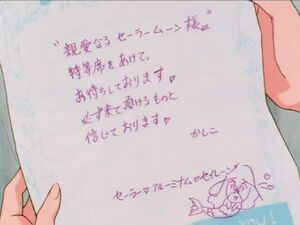 “親愛なる セーラームーン様”
特等席をあけて、
お待ちしております♥
必ず来て頂けるものと
信じております♥
かしこ
セーラー♡アルーミナム♡セイレーン